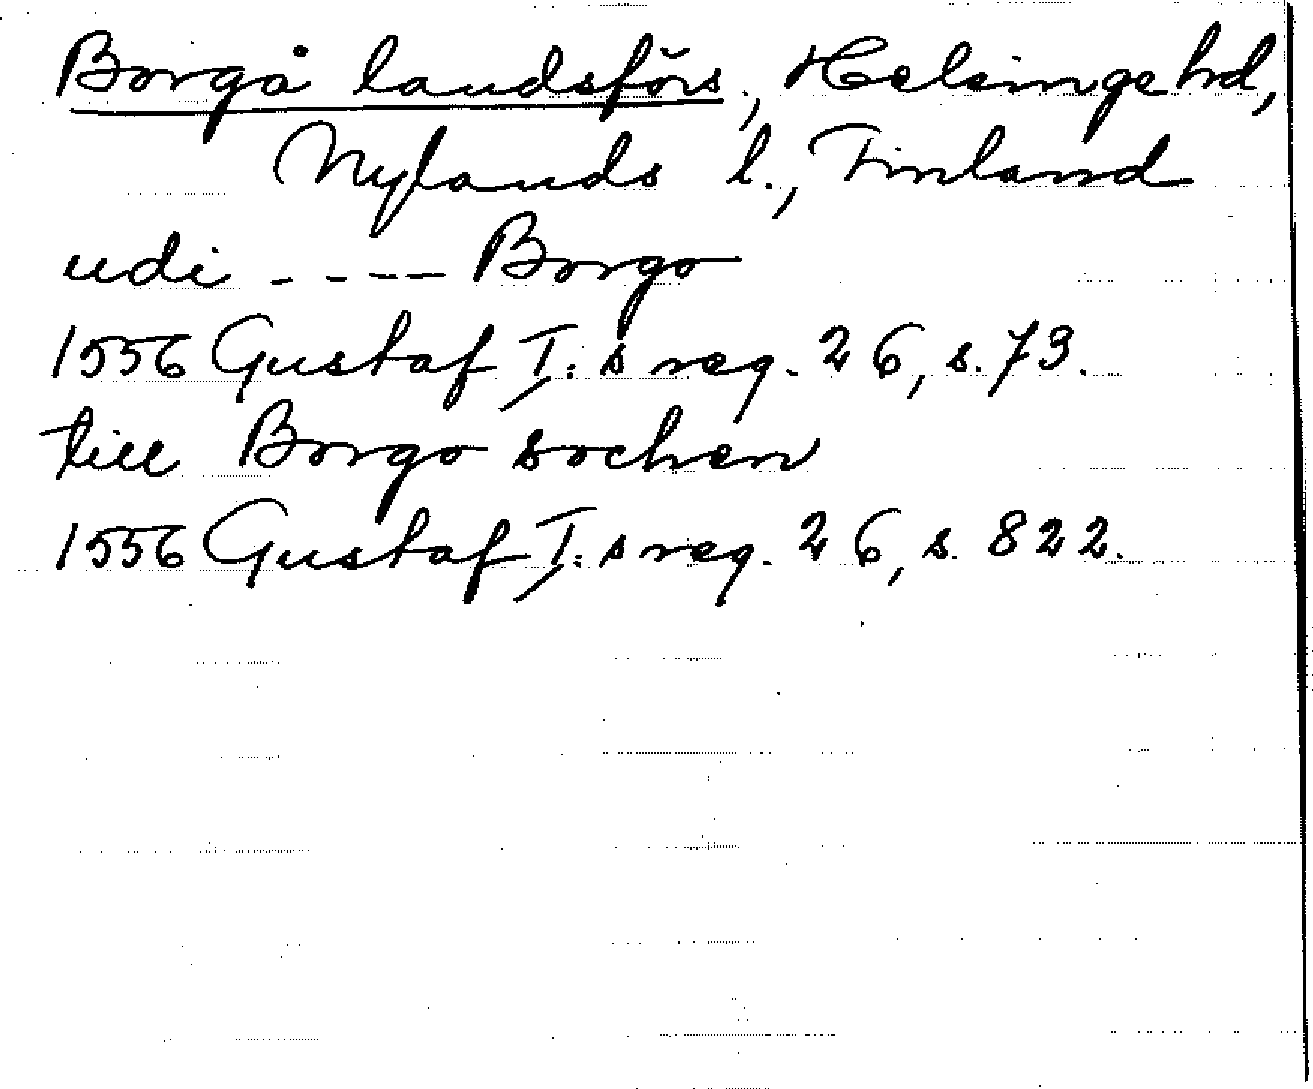 Borgå landsförs., Helsinge hd,
Nylands l., Finland
udi ---- Borgo
1556 Gustaf I:s reg. 26, s. 73.
till Borgo sochen
1556 Gustaf I:s reg. 26, s. 822.